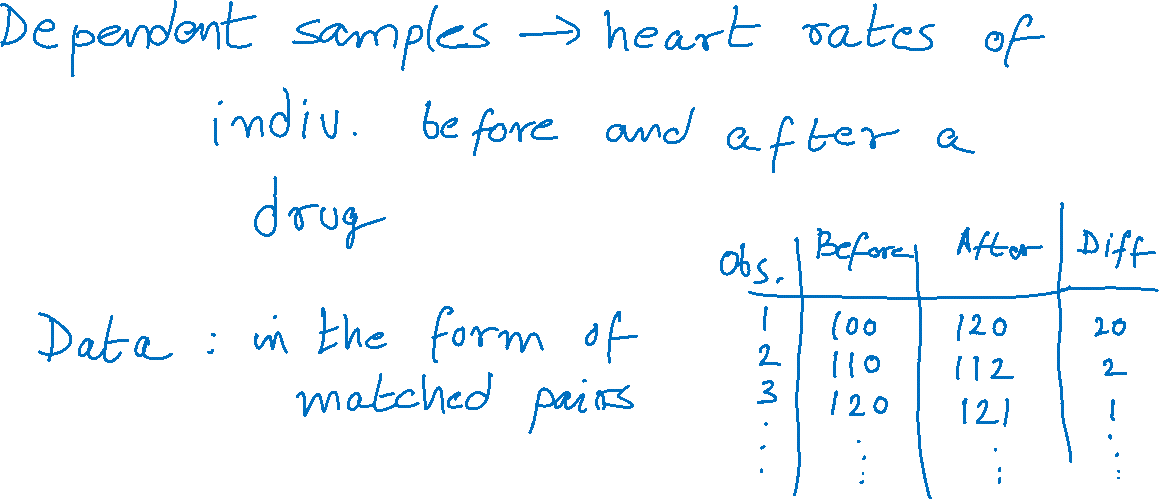 Dependent samples → heart rates of
indiv. before and after a
drug
Data : in the form of
matched pairs
Obs. Before After Diff
1 100 120 20
2 110 112 2
3 120 121 1